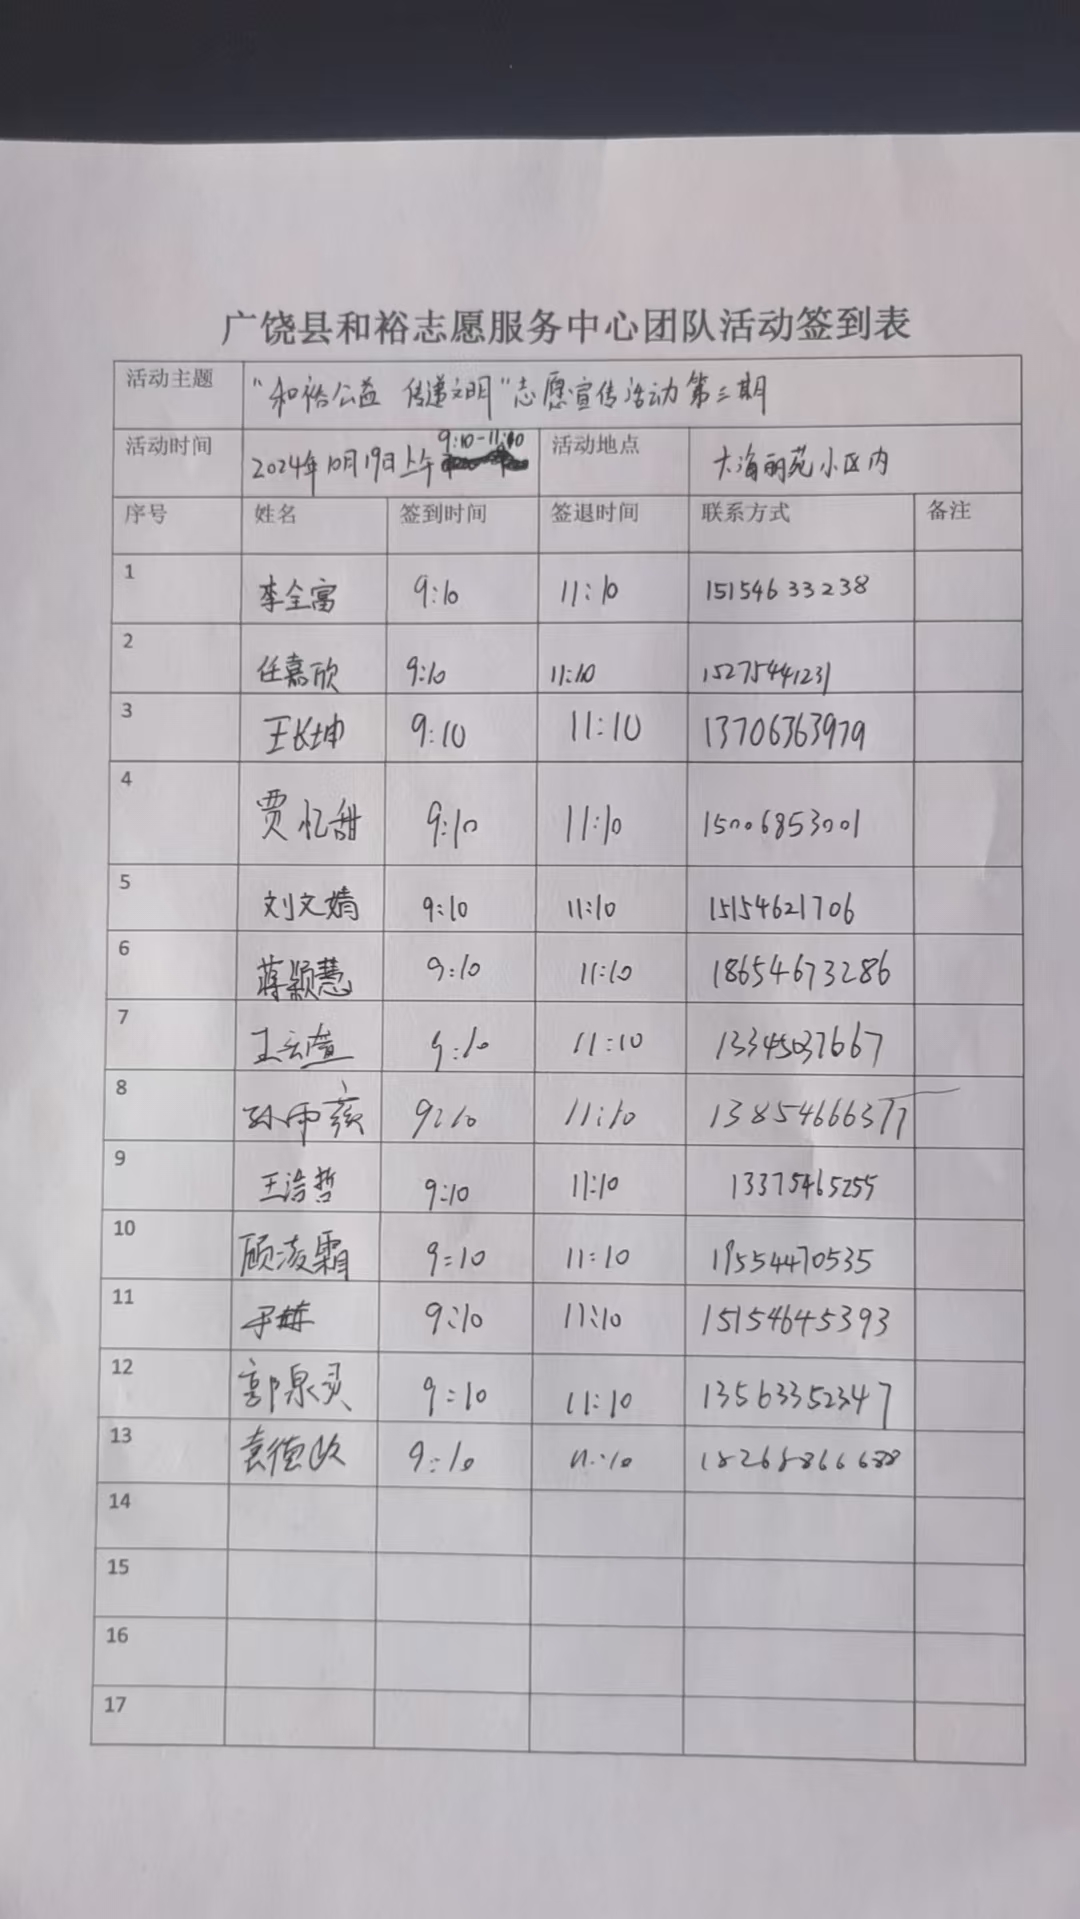 广饶县和裕志愿服务中心团队活动签到表
活动主题 "和裕公益 传递文明"志愿宣传活动第三期
9:10-11:10
活动时间 2024年10月19日上午 活动地点 大海丽苑小区内
序号 姓名 签到时间 签退时间 联系方式 备注
1 李全富 9:10 11:10 15154633238
2 任嘉欣 9:10 11:10 15275441231
3 王长坤 9:10 11:10 13706363979
4 贾忆甜 9:10 11:10 15006853001
5 刘文婧 9:10 11:10 15154621706
6 蒋颖慧 9:10 11:10 18654673286
7 9:10 11:10 13345037667
8 9:10 11:10 13854666377
9 王浩哲 9:10 11:10 13375465255
10 顾凌霜 9:10 11:10 19554470535
11 9:10 11:10 15154645393
12 郭泉灵 9:10 11:10 13563352347
13 9:10 11:10 18268866688
14
15
16
17